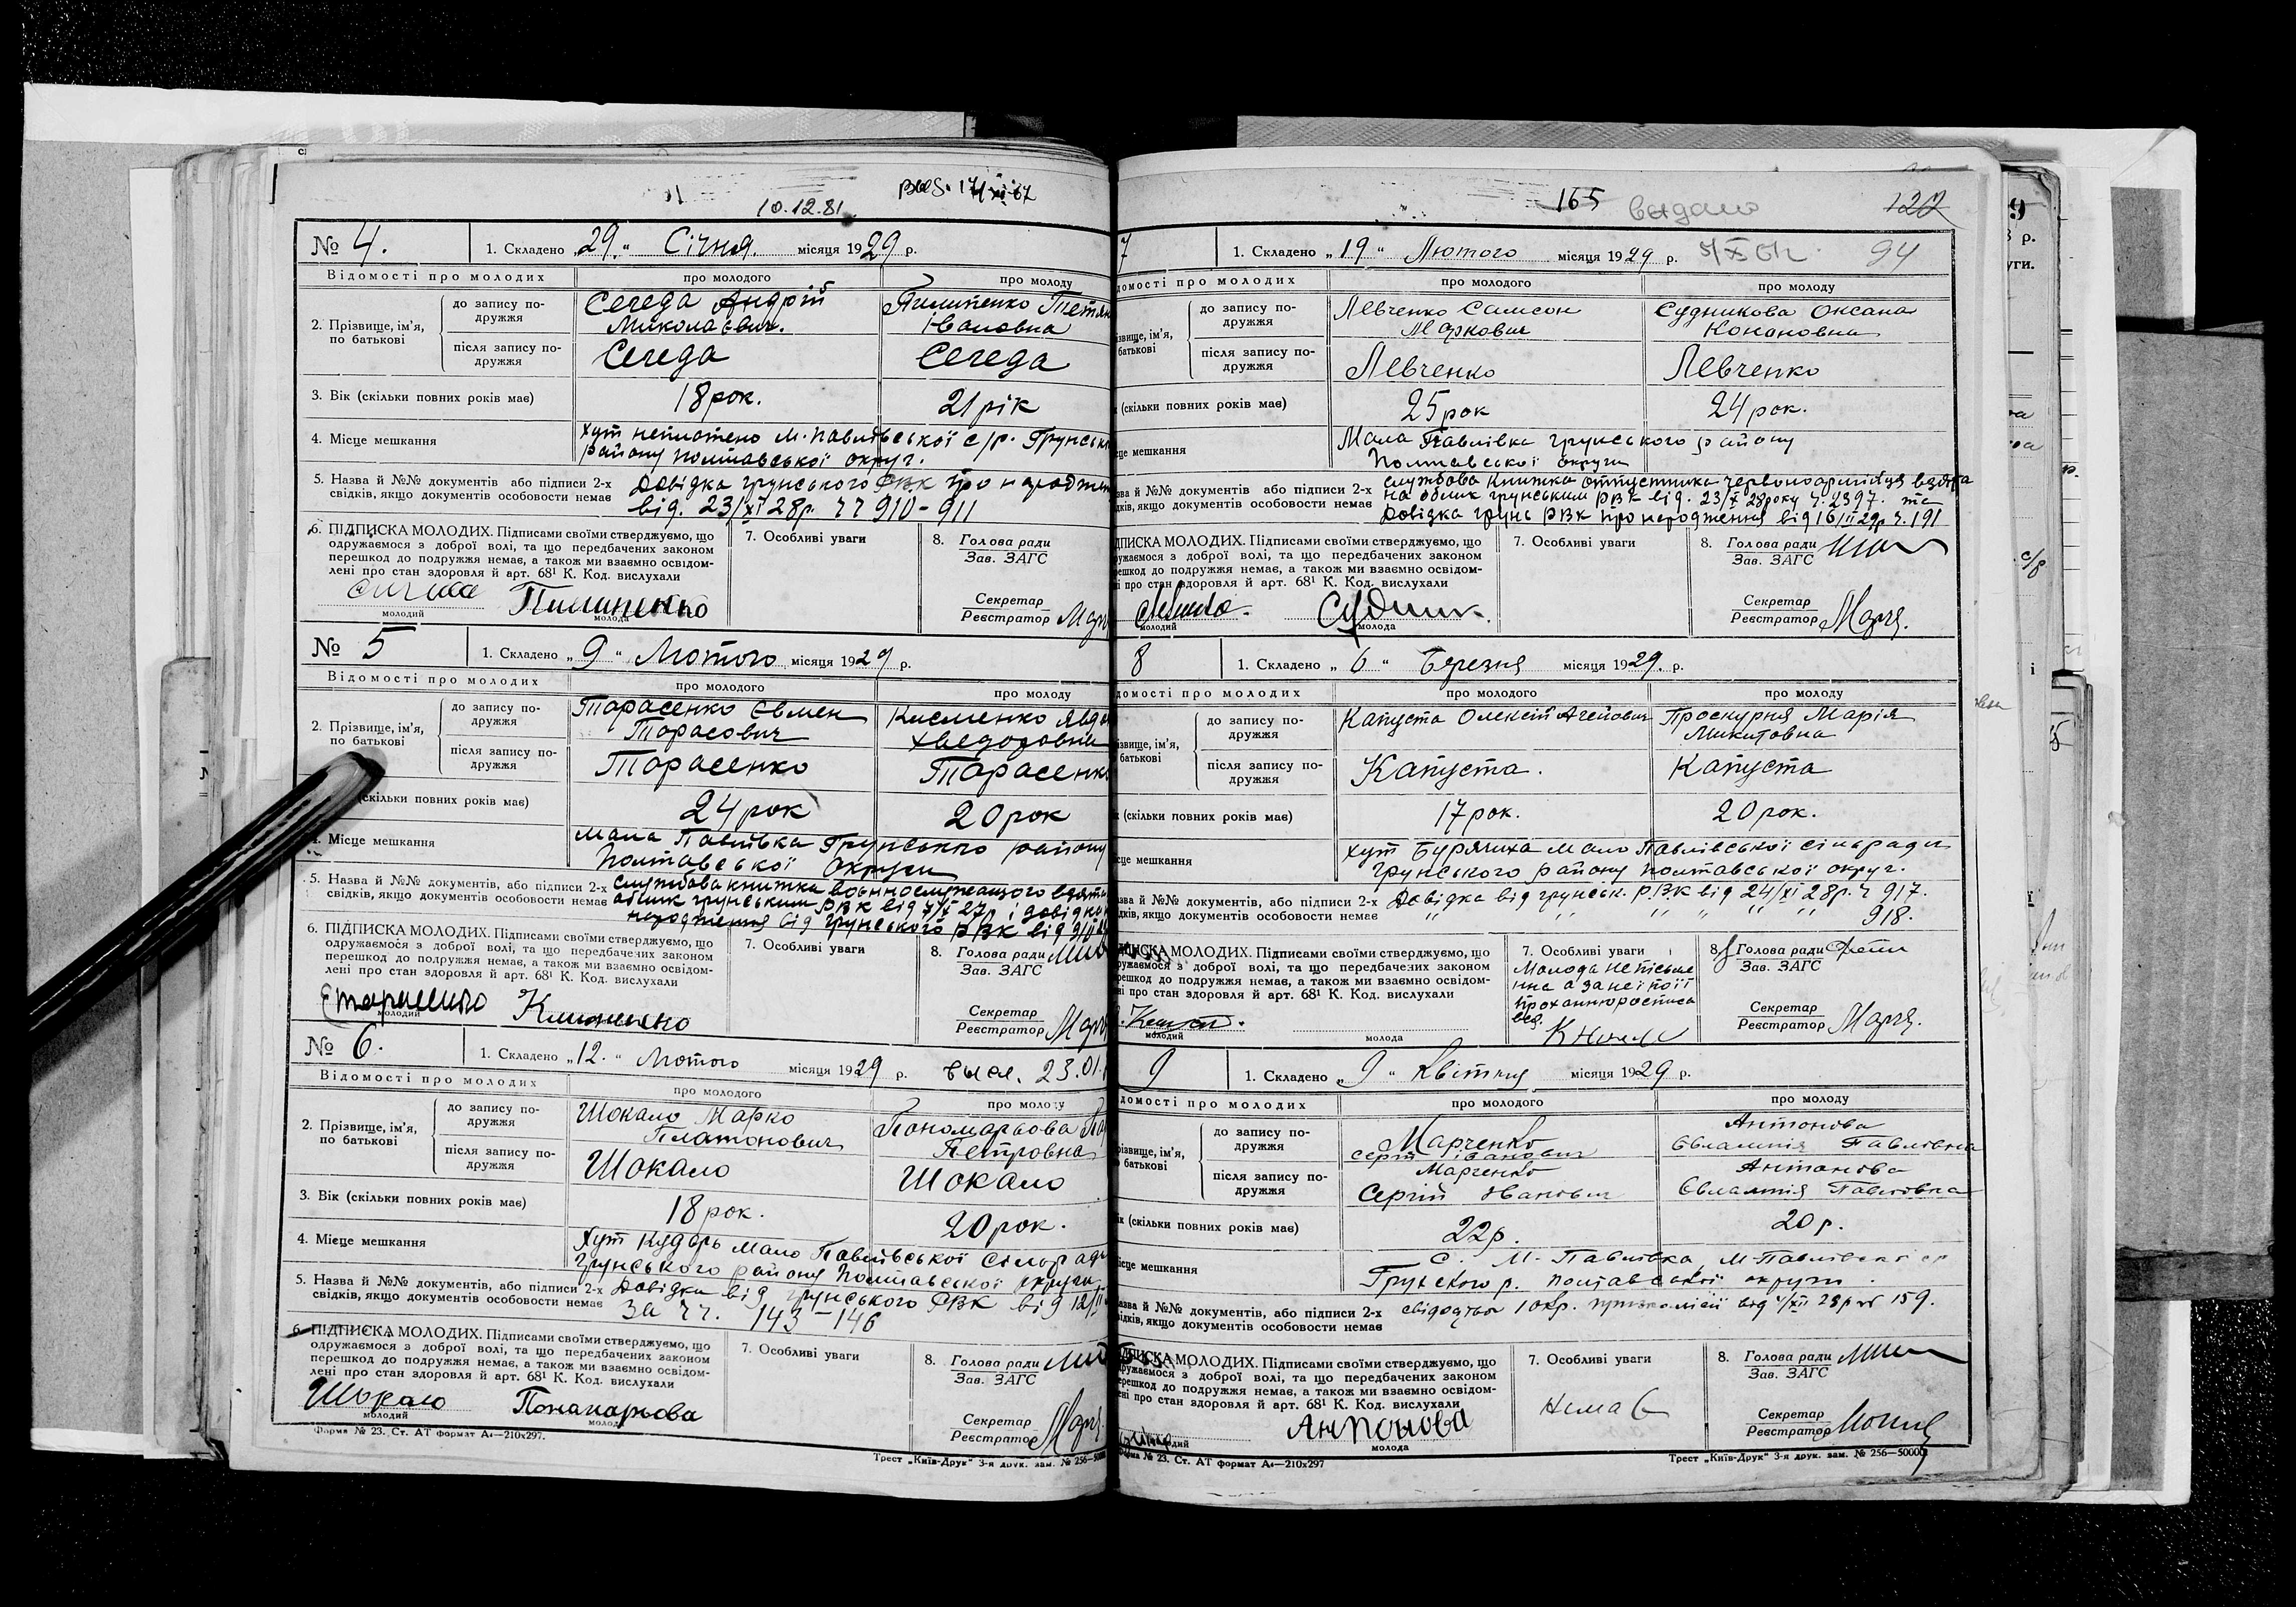 10.12.81
№ 4.
1. Складено „29.“ Січня. місяця 1929 р.
Відомості про молодих про молодого про молоду
2. Прізвище, ім’я, по батькові
до запису подружжя
Середа Андрій
Миколаєвич.
Пилипенко Тетян
Івановна
після запису подружжя
Середа
Середа
3. Вік (скільки повних років має)
18 рок.
21 рік
4. Місце мешкання
хут М. Павлівської с/р. Грунсько
району Полтавської округ.
5. Назва й №№ документів або підписи 2-х
свідків, якщо документів особовости немає
Довідка грунського РВК про народжен
від. 23/XI 28р. чч 910-911
6. ПІДПИСКА МОЛОДИХ. Підписами своїми стверджуємо, що
одружаємося з доброї волі, та що передбачених законом
перешкод до подружжя немає, а також ми взаємно освідом-
лені про стан здоровля й арт. 68¹ К. Код. вислухали
молодий
Пилипенко
молода
7. Особливі уваги
8. Голова ради
Зав. ЗАГС
Секретар
Реєстратор
№ 5
1. Складено „9“ Лютого місяця 1929 р.
Відомості про молодих про молодого про молоду
2. Прізвище, ім’я, по батькові
до запису подружжя
Тарасенко Євмен
Тарасович
Клеменко Явдо
Хведоровна
після запису подружжя
Тарасенко
Тарасенко
(скільки повних років має)
24 рок
20 рок
Місце мешкання
Мала Павлівка Грунського району
Полтавської округи
5. Назва й №№ документів, або підписи 2-х
свідків, якщо документів особовости немає
Службова книжка военнослужащого взята
облик грунським РВК від 7/X 27р і довідка
народження від грунського РВК від 9/II 29
6. ПІДПИСКА МОЛОДИХ. Підписами своїми стверджуємо, що
одружаємося з доброї волі, та що передбачених законом
перешкод до подружжя немає, а також ми взаємно освідом-
лені про стан здоровля й арт. 68¹ К. Код. вислухали
молодий
7. Особливі уваги
8. Голова ради
Зав. ЗАГС
Секретар
Реєстратор
№ 6.
1. Складено „12.“ Лютого місяця 1929 р.
23.01.
Відомості про молодих про молодого про молоду
2. Прізвище, ім’я, по батькові
до запису подружжя
Шокало Марко
Платонович
Пономарьова
Петровна
після запису подружжя
Шокало
Шокало
3. Вік (скільки повних років має)
18 рок.
20 рок.
4. Місце мешкання
Хут Кударь Мало Павлівської Сільради
грунського району Полтавської округи
5. Назва й №№ документів, або підписи 2-х
свідків, якщо документів особовости немає
Довідка від грунського РВК від 12/II
за чч. 143-146
6. ПІДПИСКА МОЛОДИХ. Підписами своїми стверджуємо, що
одружаємося з доброї волі, та що передбачених законом
перешкод до подружжя немає, а також ми взаємно освідом-
лені про стан здоровля й арт. 68¹ К. Код. вислухали
Шокало
молодий
Понамарьова
7. Особливі уваги
8. Голова ради
Зав. ЗАГС
Секретар
Реєстратор
Форма № 23. Ст. АТ формат А4—210х297.
Трест „Київ-Друк“ 3-я друк. зам. № 256—5000
165 видано 120
94
7
1. Складено „19“ Лютого місяця 1929 р.
про молодих про молодого про молоду
до запису подружжя
Левченко Самсон
Маркович
Судникова Оксана
Конановна
після запису подружжя
Левченко
Левченко
(скільки повних років має)
25 рок
24 рок.
мешкання
Мала Павлівка грунського району
Полтавської округи
№№ документів або підписи 2-х
якщо документів особовости немає
Службова книжка отпустника червоноармійця взята
на облик грунським РВК від. 23/X 28 року ч. 2397. та
Довідка грунь РВК про народження від 16/II 29р ч. 191
ПІДПИСКА МОЛОДИХ. Підписами своїми стверджуємо, що
з доброї волі, та що передбачених законом
до подружжя немає, а також ми взаємно освідом-
про стан здоровля й арт. 68¹ К. Код. вислухали
молодий
молода
7. Особливі уваги
8. Голова ради
Зав. ЗАГС
Секретар
Реєстратор
8
1. Складено „6“ Березня місяця 1929. р.
про молодих про молодого про молоду
до запису подружжя
Капуста Олексій Агейович
Проскурня Марія
Микитовна
після запису подружжя
Капуста.
Капуста
(скільки повних років має)
17 рок.
20 рок.
мешкання
хут Бурячиха Мало Павлівської сільради
Грунського району Полтавської округ.
№№ документів, або підписи 2-х
якщо документів особовости немає
Довідка від грунськ. РВК від 24/XI 28р. ч 917.
„ „ „ „ „ „ 918.
МОЛОДИХ. Підписами своїми стверджуємо, що
з доброї волі, та що передбачених законом
до подружжя немає, а також ми взаємно освідом-
про стан здоровля й арт. 68¹ К. Код. вислухали
молодий
молода
7. Особливі уваги
Молода неписьме
нна а за неї по її
проханню росписа
вся.
8. Голова ради
Зав. ЗАГС
Секретар
Реєстратор
9
1. Складено „9“ Квітня місяця 1929 р.
про молодих про молодого про молоду
до запису подружжя
Марченко
Сергій Іванович
Антонова
Євлампія Павлівна
після запису подружжя
Марченко
Сергій Іванович
Антонова
Євлампія Павловна
(скільки повних років має)
22р.
20 р.
мешкання
с. М-Павлівка, М-Павлівської ср
Грунського р. Полтавської округи.
№№ документів, або підписи 2-х
якщо документів особовости немає
159.
МОЛОДИХ. Підписами своїми стверджуємо, що
з доброї волі, та що передбачених законом
до подружжя немає, а також ми взаємно освідом-
про стан здоровля й арт. 68¹ К. Код. вислухали
Антонова
молода
7. Особливі уваги
Нема є
8. Голова ради
Зав. ЗАГС
Секретар
Реєстратор
№ 23. Ст. АТ формат А4—210х297
Трест „Київ-Друк“ 3-я друк. зам. № 256—50000